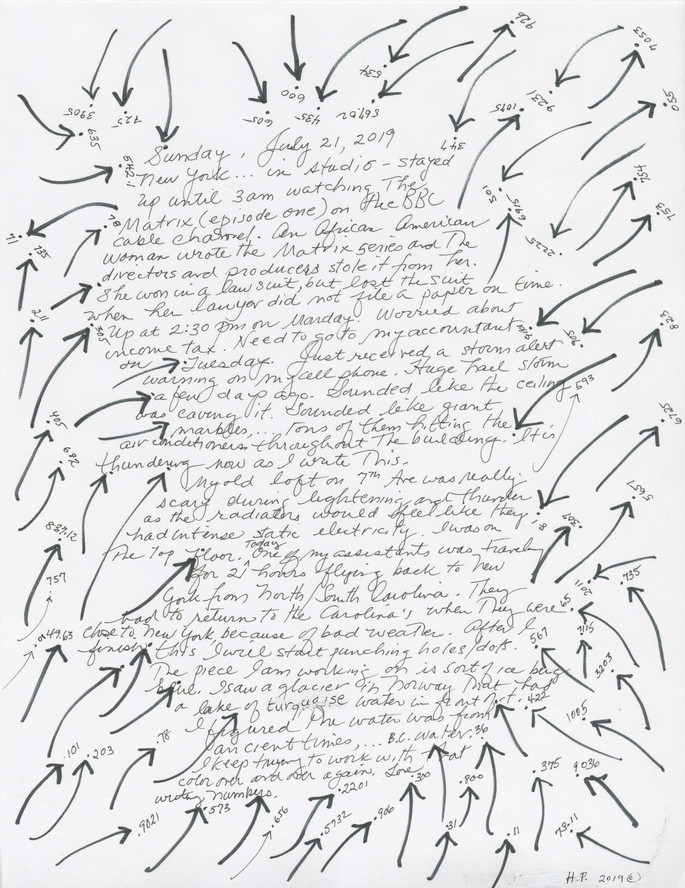 Sunday, July 21, 2019
New York... in studio - stayed
up until 3am watching The
Matrix (episode one) on the BBC
cable channel. An African American
woman wrote the Matrix series and The
directors and producers stole it from her.
She won in a law suit, but lost the suit
when her lawyer did not file a paper on time.
Up at 2:30 pm on Monday. Worried about
income tax. Need to go to my accountant
on Tuesday. Just received a storm alert
warning on my cell phone. Huge hail storm
a few days ago. Sounded like the ceiling
was caving it. Sounded like giant
marbles,... tons of them hitting the
air conditioners throughout the building. It is
thundering now as I write This.
My old loft on 7th Ave was really
scary during lightening and thunder
as the radiators would feel like they
had intense static electricity. I was on
The Top Floor. Today One of my assistants was Traveling
for 21 hours flying back to New
York from North/South Carolina. They
had to return to the Carolina's when They were
close to New York because of bad weather. After I
finish this I will start punching holes/dots.
The piece I am working on is sort of ice berg
blue. I saw a glacier in Norway That had
a lake of turquoise water in front of it.
I figured The water was from
ancient times,... B.C. water.
I keep trying to work with that
color over and over again. Love
writing numbers.
926
7053
634
600
605
435
567.02
3905
635
725
347
1045
9231
055
542.1
501
6915
2225
754
753
71
735
211
905
823
593
465
682
6725
837.12
5651
387
757
2011
735
65
.049.63
567
715
3203
422
1005
.101
.203
.78
.36
.300
.800
.375
9036
.2201
.573
.656
.9021
.5732
.906
.31
.11
73.11
H.P. 2019 ©